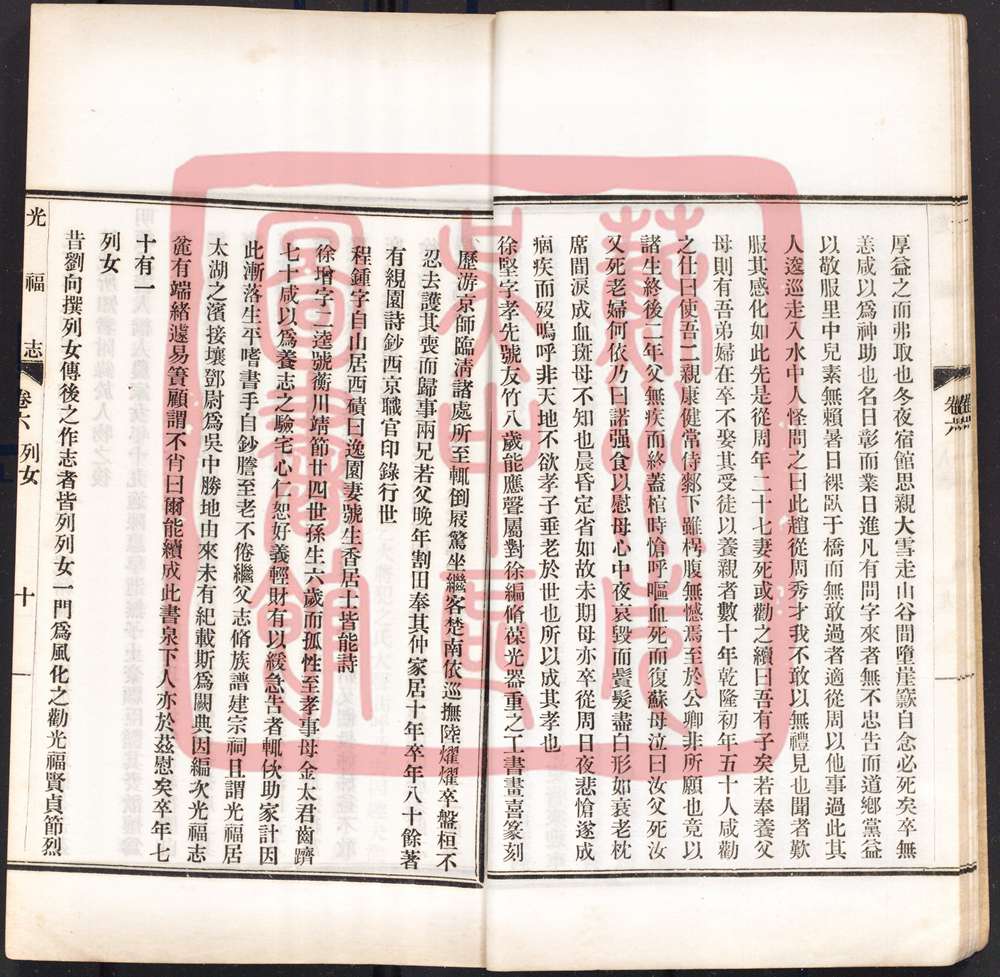 厚益之而弗取也冬夜宿館思親大雪走山谷間墮崖窾自念必死矣卒無
恙咸以爲神助也名日彰而業日進凡有問字來者無不忠告而道鄉黨益
以敬服里中兒素無賴暑日裸臥于橋而無敢過者適從周以他事過此其
人逡巡走入水中人怪問之曰此趙從周秀才我不敢以無禮見也聞者歎
服其感化如此先是從周年二十七妻死或勸之續曰吾有子矣若奉養父
母則有吾弟婦在卒不娶其受徒以養親者數十年乾隆初年五十人咸勸
之仕曰使吾二親康健常侍鄰下雖枵腹無憾焉至於公卿非所願也竟以
諸生終後二年父無疾而終蓋棺時愴呼嘔血死而復蘇母泣曰汝父死汝
又死老婦何依乃曰諾强食以慰母心中夜哀毀而鬢髮盡白形如衰老枕
席間淚成血斑母不知也晨昏定省如故未期母亦卒從周日夜悲愴遂成
痼疾而歿嗚呼非天地不欲孝子垂老於世也所以成其孝也
徐堅字孝先號友竹八歲能應聲屬對徐編脩葆光器重之工書畫喜篆刻
歷游京師臨清諸處所至輒倒屐驚坐繼客楚南依巡撫陸燿燿卒盤桓不
忍去護其喪而歸事兩兄若父晚年割田奉其仲家居十年卒年八十餘著
有緄園詩鈔西京職官印錄行世
程鍾字自山居西磧曰逸園妻號生香居士皆能詩
徐增字二逵號衡川靖節廿四世孫生六歲而孤性至孝事母金太君齒躋
七十咸以爲養志之驗宅心仁恕好義輕財有以緩急吿者輒佽助家計因
此漸落生平嗜書手自鈔謄至老不倦繼父志脩族譜建宗祠且謂光福居
太湖之濱接壤鄧尉爲吳中勝地由來未有紀載斯爲闕典因編次光福志
麄有端緒遽易簀顧謂不肖曰爾能續成此書泉下人亦於茲慰矣卒年七
十有一
列女
昔劉向撰列女傳後之作志者皆列列女一門爲風化之勸光福賢貞節烈
光福志
卷六 列女
十一
蘇州市吳中區圖書館